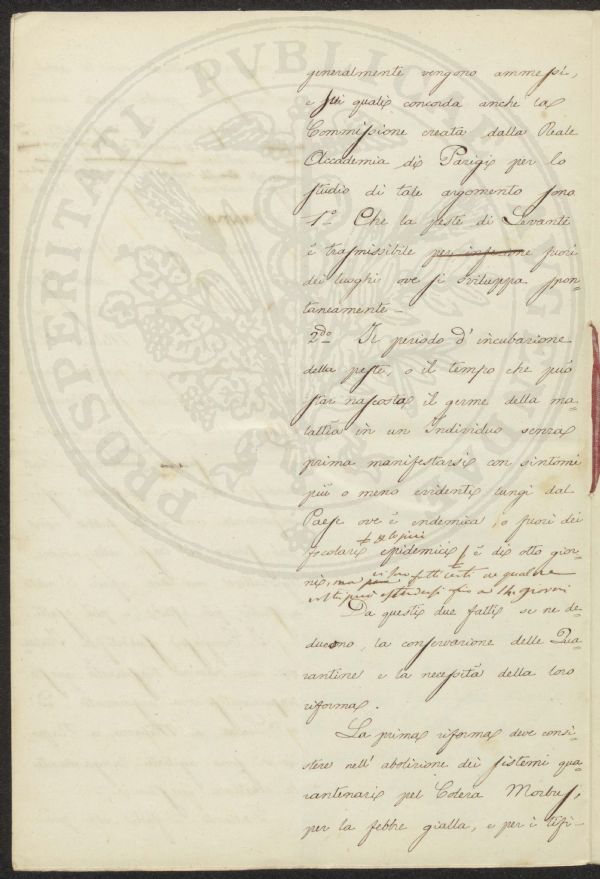 generalmente vengono ammessi,
e sui quali concorda anche la
Commissione creata dalla Reale
Accademia di Parigi per lo
studio di tale argomento sono
1.o Che la peste di Levante
è trasmissibile per infezione fuori
dei luoghi ove si sviluppa spon=
taneamente –
2.do Il periodo d'incubazione
della peste, o il tempo che può
star nascosta il germe della ma=
lattia in un Individuo senza
prima manifestarsi con sintomi
più o meno evidenti lungi dal
Paese ove è endemica, o fuori dei
focolari epidemici è di otto gior=
ni, ma fatti certi
volte può estendersi fino a 14 giorni
Da questi due fatti se ne de=
ducono, la conservazione delle Qua=
rantine e la necessità della loro
riforma.
La prima riforma deve consi=
stere nell'abolizione dei sistemi qua=
rantenari pel Colera Morbus,
per la febbre gialla, e per i tifi–
PROSPERITATI PUBLICAE